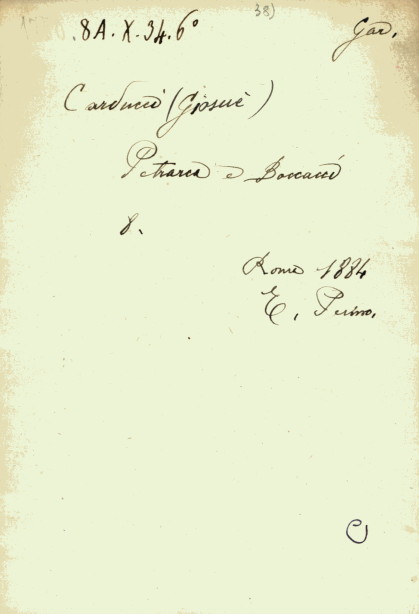 38)
8A.X.34.6°
Gar.
Carducci (Giosuè)
Petrarca e Boccacci
8.
Roma 1884
E. Perino.